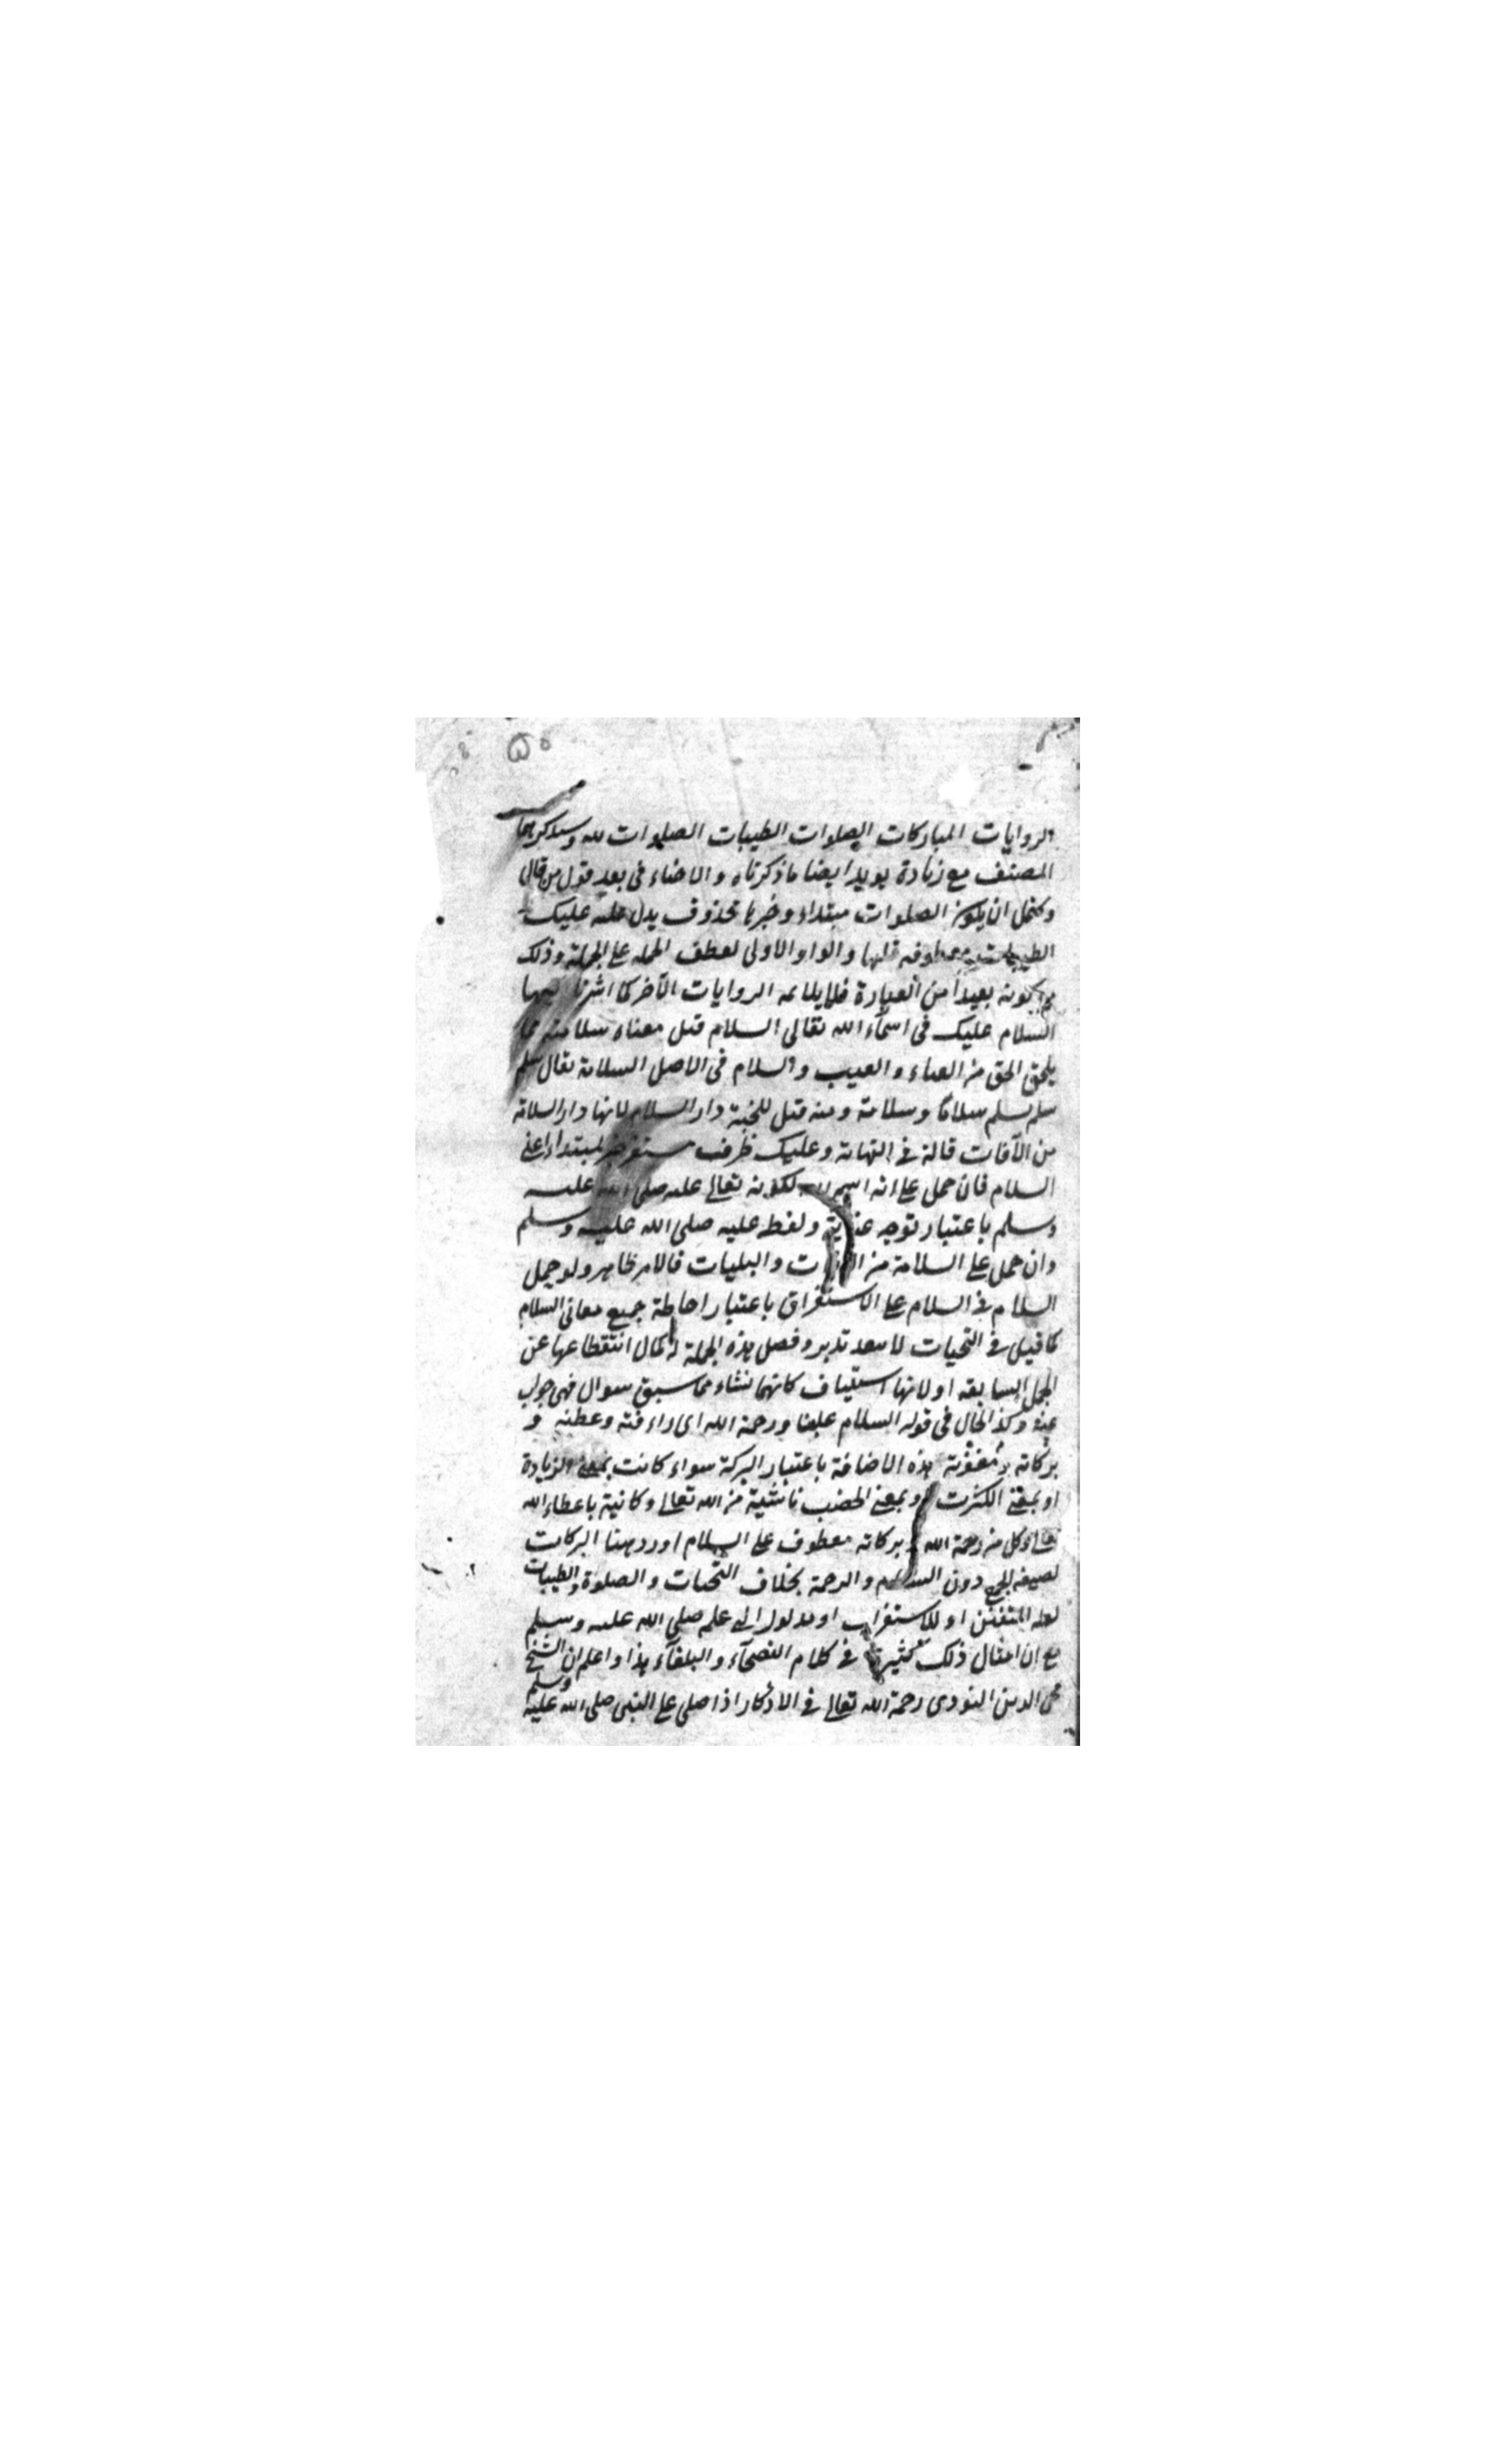 الروايات المباركات الصلوات الطيبات الصلوات لله وسيذكرهما
المصنف مع زيادة يويد ايضا ما ذكرناه والاخفاء في بعد قول من قال
وكتمل ان يكون الصلوات مبتداء وخبرها محذوف يدل عليه عليك
الطيبات معطوفه عليها والواو الاولى لعطف الجمله على الجملة وذلك
مع كونه بعيدا من العبارة فلا يلائمه الروايات الآخر كما اشرنا اليها
السلام عليك في اسمآء الله تعالى السلام قيل معناه سلامته مما
يلحق الحق من العناء والعيب والسلام في الاصل السلامة يقال سلم
سلم يسلم سلاما وسلامة ومنه قيل للجنة دار السلام لانها دار السلامة
من الآفات قاله في النهاية وعليك ظرف مستقر خبر لمبتداء اعني
السلام فان حمل على انه اسم لكونه تعالى عليه صلى الله عليه
وسلم باعتبار توجه عناية ولفظ عليه صلى الله عليه وسلم
وان حمل على السلامة من والبليات فالامر ظاهر ولو حمل
السلام في السلام على الاستغراق باعتبار احاطة جميع معاني السلام
كما قيل في التحيات لا يبعد تدبر وفصل هذه الجملة لكمال انتقطاعها عن
الجمل السابقه او لانها استيناف كانهما نشاء مما سبق سوال فهي جواب
عنه وكذا الحال في قوله السلام علينا ورحمة الله اى راءفته وعطفه و
بركاته هذه الاضافة باعتبار البركة سواء كانت بمعنى الزيادة
او بمعنى الكثرت او بمعنى الخصب ناشية من الله تعالى وكانية باعطاء الله
تعالى وكل من رحمة الله وبركاته معطوف على السلام اورد ههنا البركات
لصيغه الجمع دون السلام والرحمة بخلاف التحيات والصلوة والطيبات
لعله للتفنن او للاستغراب او مدلول الى علم صلى الله عليه وسلم
مع ان امثال ذلك كثيرة في كلام الفصحآء والبلغآء هذا واعلم ان الشيخ
محي الدين النووى رحمة الله تعالى في الاذكار اذا صلى على النبي صلى الله عليه وسلم